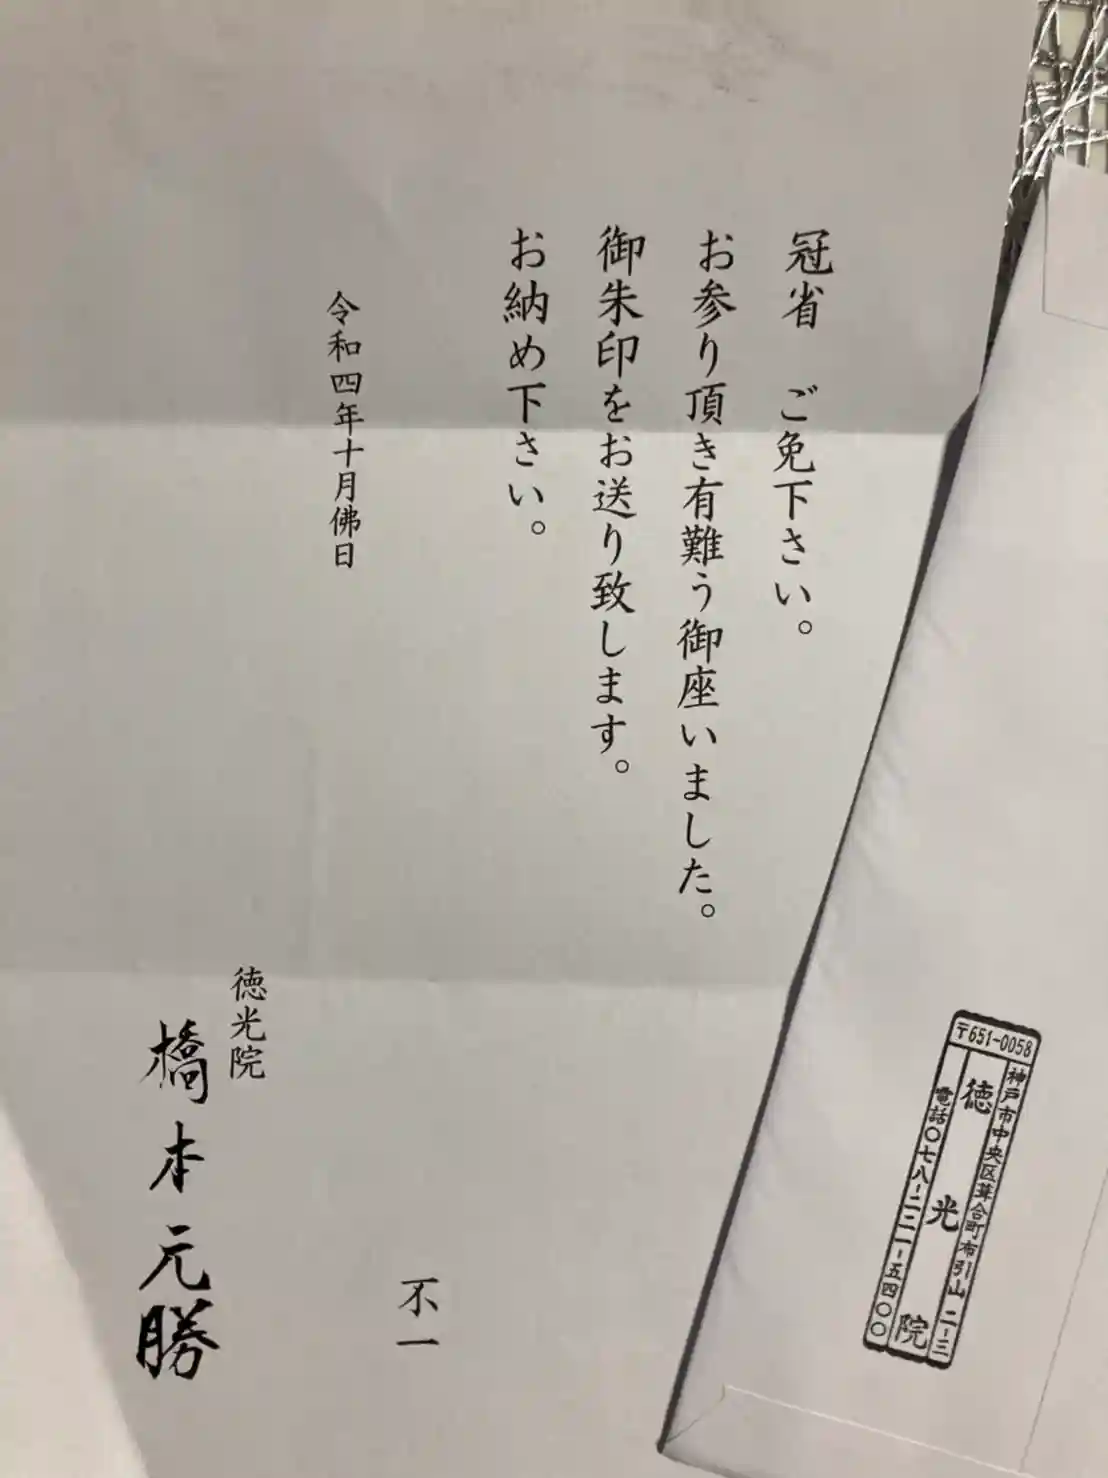 冠省　ご免下さい。
お参り頂き有難う御座いました。
御朱印をお送り致します。
お納め下さい。
不一
令和四年十月佛日
徳光院
橋本元勝
〒651-0058
神戸市中央区葺合町布引山二-三
徳光院
電話〇七八-二二一-五四〇〇